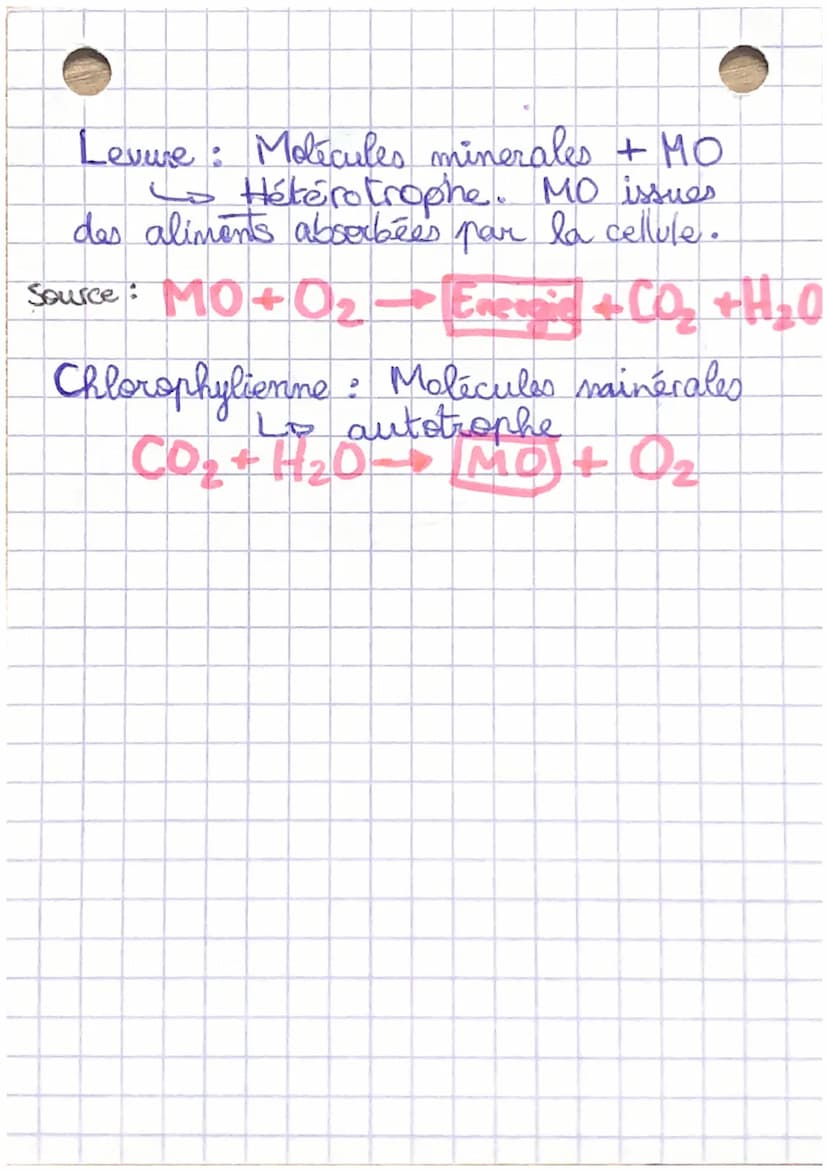 Levure : Molécules minerales + MO
↳ Hétérotrophe. MO issues
des aliments absorbées par la cellule.
Source : MO + O₂ → Energie + CO₂ + H₂O
Chlorophylienne : Molécules minérales
↳ autotrophe
CO₂ + H₂O → MO + O₂